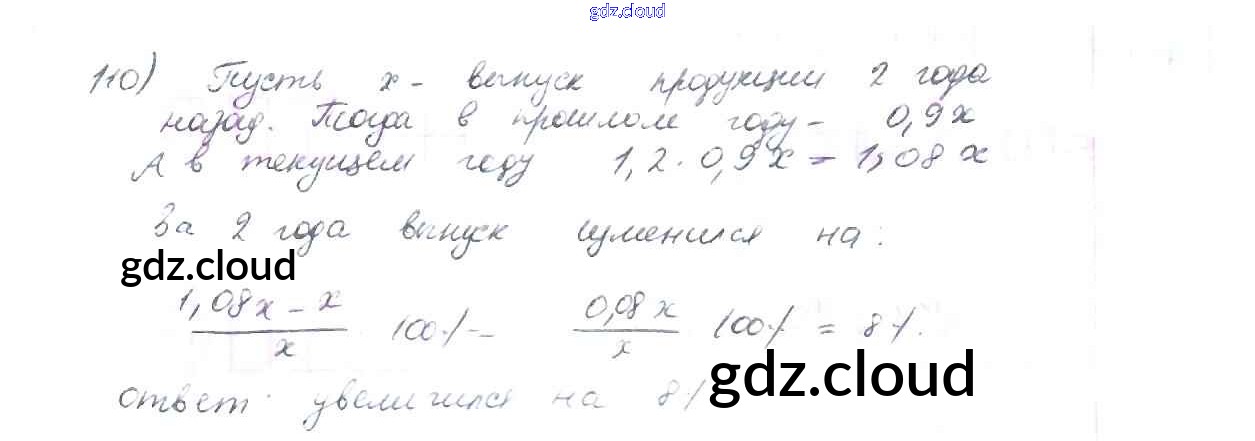 gdz.cloud
110) Пусть x - выпуск продукции 2 года
назад. Тогда в прошлом году - 0,9x
А в текущем году 1,2 · 0,9x = 1,08x
За 2 года выпуск изменился на:
gdz.cloud
1,08x - x / x · 100% = 0,08x / x · 100% = 8%.
gdz.cloud
ответ: увеличился на 8%